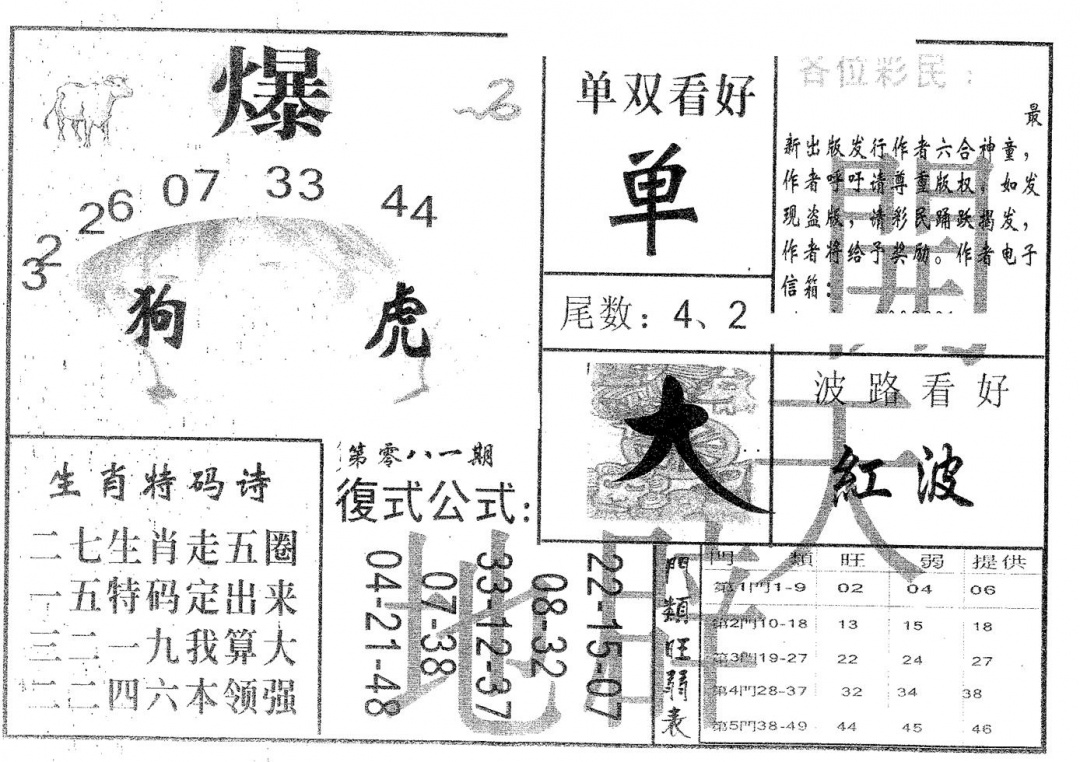 爆
32
26
07
33
44
狗 虎
单双看好
单
尾数：4、2
各位彩民：
最
新出版发行作者六合神童，
作者呼吁请尊重版权。如发
现盗版，情彩民踊跃揭发，
作者将给予奖励。作者电子
信箱：
大
波路看好
紅波
生肖特码诗
二七生肖走五圈
一五特码定出来
三二一九我算大
二二四六本领强
第零八一期
復式公式：
04-21-48
07-38
33-12-37
08-32
22-15-07
門類旺弱表
門類 旺 弱 提供
第1門1-9 02 04 06
第2門10-18 13 15 18
第3門19-27 22 24 27
第4門28-37 32 34 38
第5門38-49 44 45 46